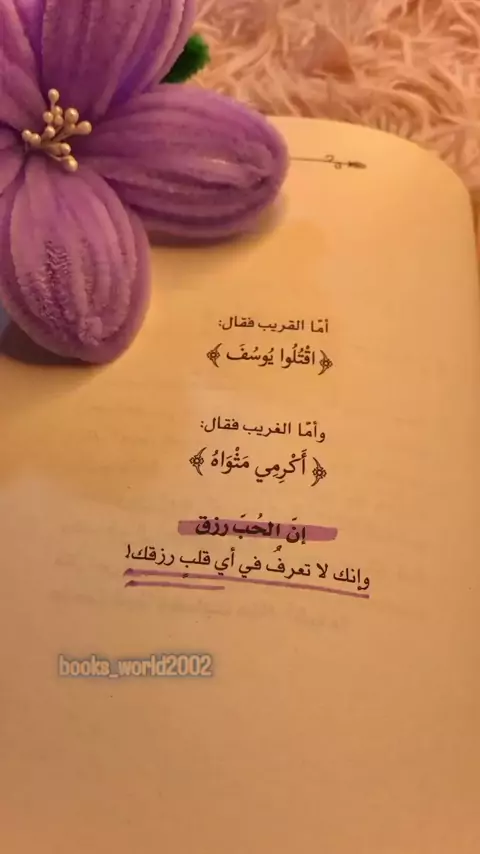 أمّا القريب فقال:
﴿اقْتُلُوا يُوسُفَ﴾
وأمّا الغريب فقال:
﴿أَكْرِمِي مَثْوَاهُ﴾
إنّ الحُبَ رزق
وإنك لا تعرفُ في أي قلبٍ رزقك!
books_world2002